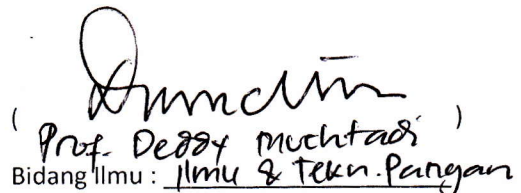 ( Prof. Deddy Muchtadi )
Bidang Ilmu : Ilmu & Tekn. Pangan